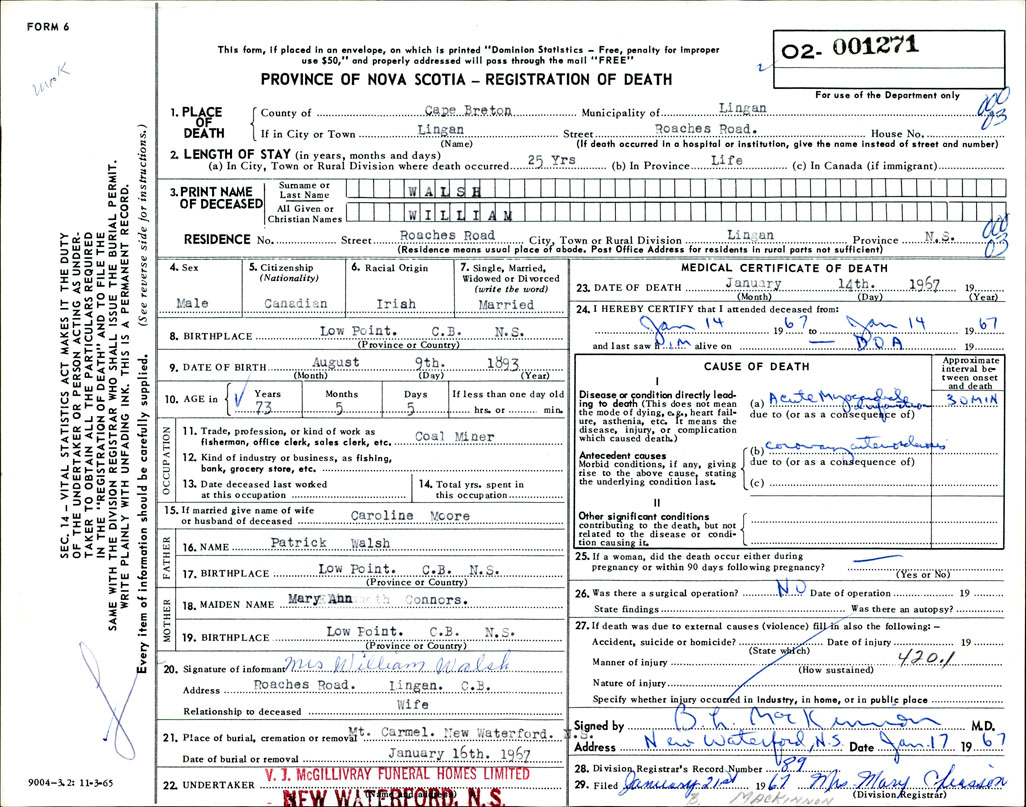 FORM 6
This form, if placed in an envelope, on which is printed "Dominion Statistics – Free, penalty for improper
use $50," and properly addressed will pass through the mail "FREE"
O2- 001271
PROVINCE OF NOVA SCOTIA – REGISTRATION OF DEATH
For use of the Department only
1. PLACE OF DEATH
County of Cape Breton Municipality of Lingan
If in City or Town Lingan Street Roaches Road. House No.
(Name) (If death occurred in a hospital or institution, give the name instead of street and number)
2. LENGTH OF STAY (in years, months and days)
(a) In City, Town or Rural Division where death occurred 25 Yrs (b) In Province Life (c) In Canada (if immigrant)
3. PRINT NAME OF DECEASED
Surname or Last Name WALSH
All Given or Christian Names WILLIAM
RESIDENCE No. Street Roaches Road City, Town or Rural Division Lingan Province N.S.
(Residence means usual place of abode. Post Office Address for residents in rural parts not sufficient)
000
03
000
03
SEC. 14 – VITAL STATISTICS ACT MAKES IT THE DUTY
OF THE UNDERTAKER OR PERSON ACTING AS UNDER-
TAKER TO OBTAIN ALL THE PARTICULARS REQUIRED
IN THE "REGISTRATION OF DEATH" AND TO FILE THE
SAME WITH THE DIVISION REGISTRAR WHO SHALL ISSUE THE BURIAL PERMIT.
WRITE PLAINLY WITH UNFADING INK. THIS IS A PERMANENT RECORD.
Every item of information should be carefully supplied. (See reverse side for instructions.)
4. Sex
Male
5. Citizenship
(Nationality)
Canadian
6. Racial Origin
Irish
7. Single, Married,
Widowed or Divorced
(write the word)
Married
8. BIRTHPLACE Low Point. C.B. N.S.
(Province or Country)
9. DATE OF BIRTH August 9th. 1893
(Month) (Day) (Year)
10. AGE in
Years 73
Months 5
Days 5
If less than one day old
hrs. or min.
OCCUPATION
11. Trade, profession, or kind of work as
fisherman, office clerk, sales clerk, etc. Coal Miner
12. Kind of industry or business, as fishing,
bank, grocery store, etc.
13. Date deceased last worked
at this occupation
14. Total yrs. spent in
this occupation
15. If married give name of wife
or husband of deceased Caroline Moore
FATHER
16. NAME Patrick Walsh
17. BIRTHPLACE Low Point. C.B. N.S.
(Province or Country)
MOTHER
18. MAIDEN NAME Mary Ann Connors.
19. BIRTHPLACE Low Point. C.B. N.S.
(Province or Country)
20. Signature of informant Mrs William Walsh
Address Roaches Road. Lingan. C.B.
Relationship to deceased Wife
21. Place of burial, cremation or removal Mt. Carmel. New Waterford. N.S.
Date of burial or removal January 16th. 1967
22. UNDERTAKER V. J. McGILLIVRAY FUNERAL HOMES LIMITED
(Name and address)
NEW WATERFORD, N.S.
9004-3.2: 11-3-65
MEDICAL CERTIFICATE OF DEATH
23. DATE OF DEATH January 14th. 1967 19
(Month) (Day) (Year)
24. I HEREBY CERTIFY that I attended deceased from:
Jan 14 1967 to Jan 14 1967
and last saw h im alive on — DOA 19
CAUSE OF DEATH
Approximate
interval be-
tween onset
and death
I
Disease or condition directly lead-
ing to death (This does not mean
the mode of dying, e.g., heart fail-
ure, asthenia, etc. It means the
disease, injury, or complication
which caused death.)
(a) Acute Myocardial Infarction 30 MIN
due to (or as a consequence of)
Antecedent causes
Morbid conditions, if any, giving
rise to the above cause, stating
the underlying condition last.
(b) coronary arteriosclerosis
due to (or as a consequence of)
(c)
II
Other significant conditions
contributing to the death, but not
related to the disease or condi-
tion causing it.
25. If a woman, did the death occur either during
pregnancy or within 90 days following pregnancy? —
(Yes or No)
26. Was there a surgical operation? NO Date of operation 19
State findings Was there an autopsy?
27. If death was due to external causes (violence) fill in also the following:–
Accident, suicide or homicide? Date of injury 19
(State which)
Manner of injury 420.1
(How sustained)
Nature of injury
Specify whether injury occurred in Industry, in home, or in public place
Signed by B. L. MacKinnon M.D.
Address New Waterford, N.S. Date Jan. 17 1967
28. Division Registrar's Record Number 89
29. Filed January 21st 1967 Mrs Mary
(Division Registrar)
B. MACKINNON